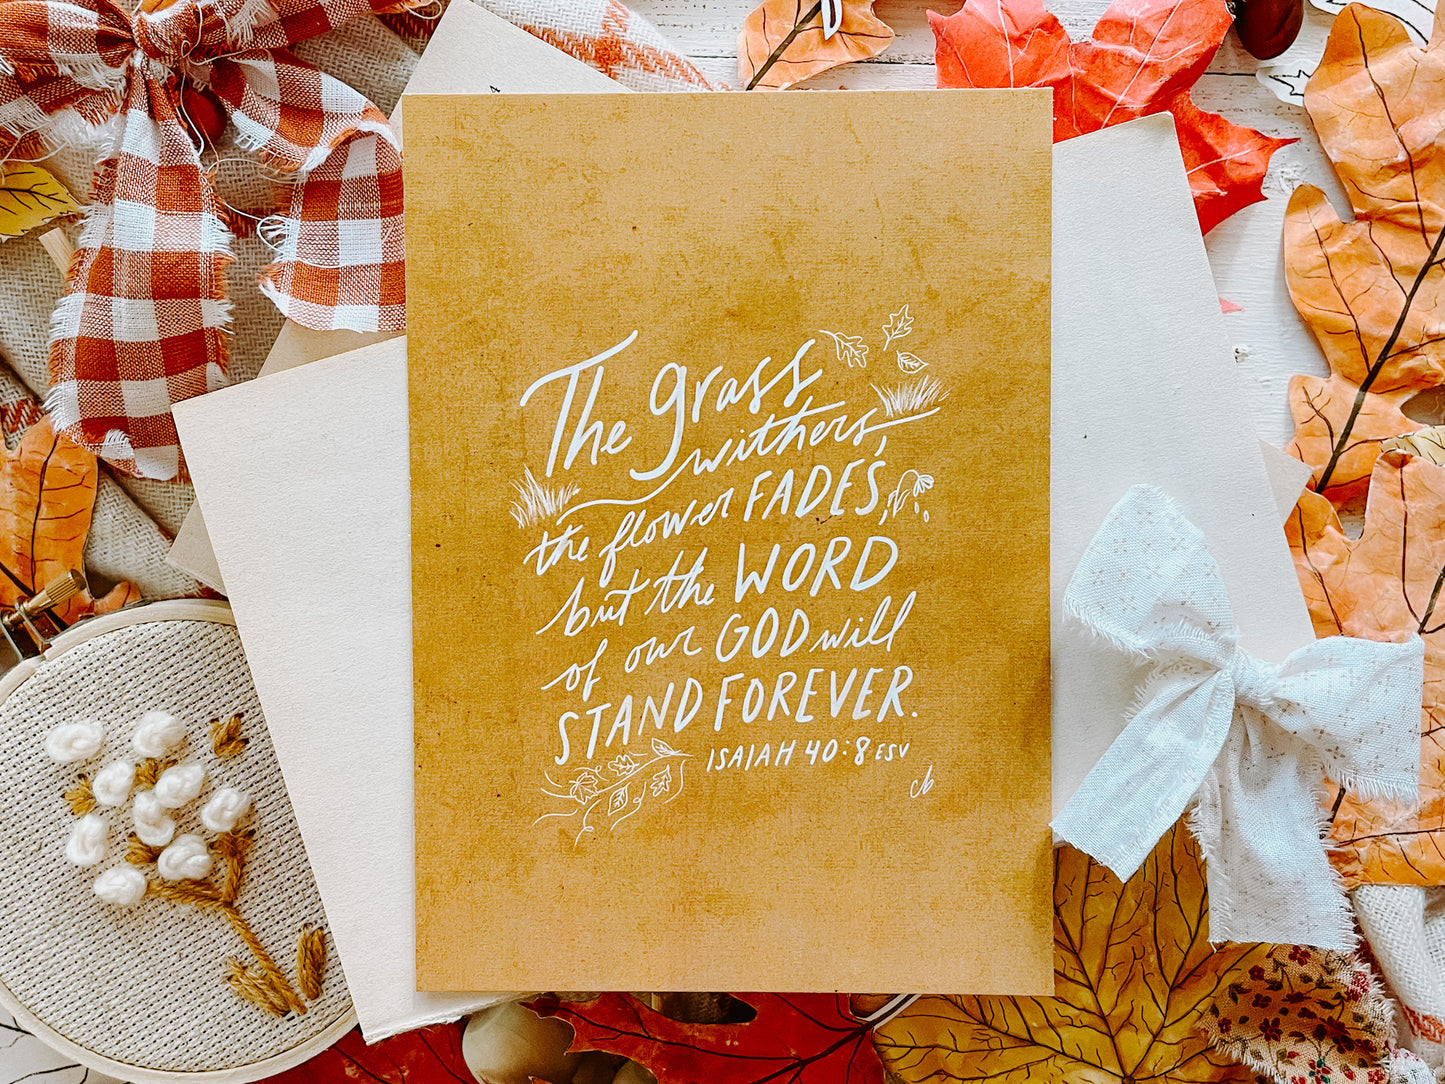 The grass
withers,
the flower FADES,
but the WORD
of our GOD will
STAND FOREVER.
ISAIAH 40:8 ESV
cb